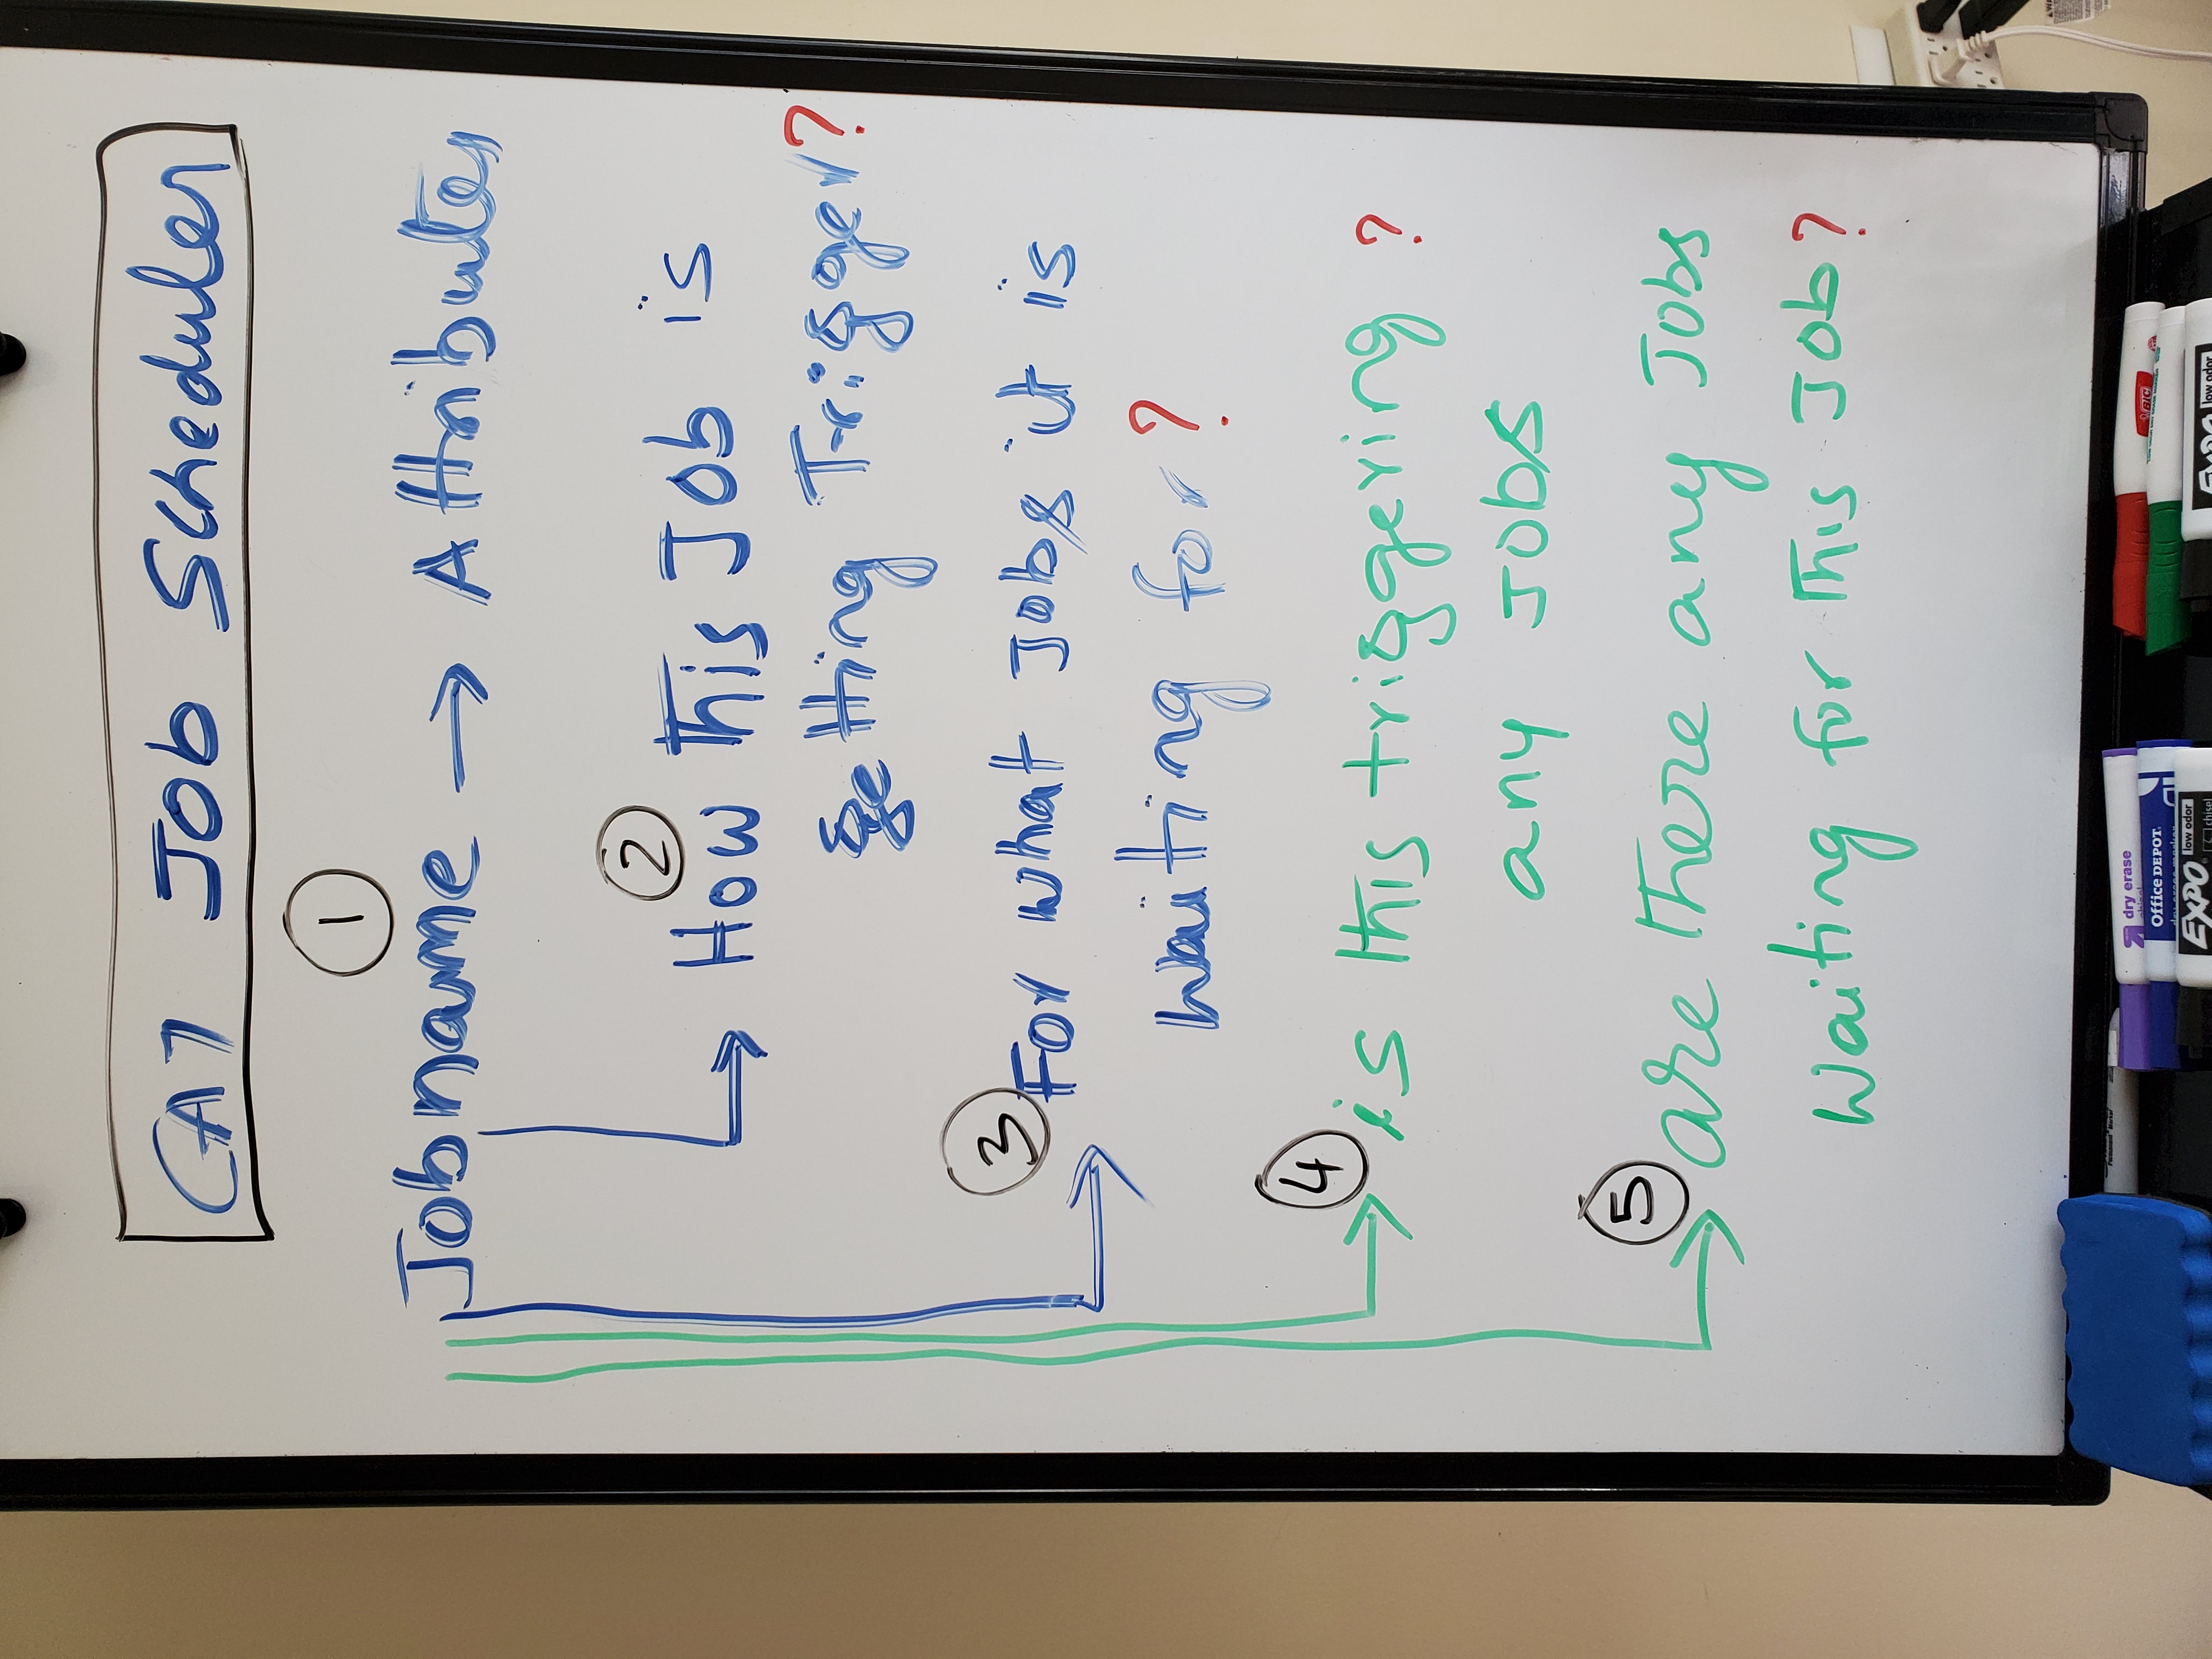 CA7 Job Scheduler
1
Jobname → Attributes
2
How this Job is
getting Trigger?
3
For what Jobs it is
waiting for?
4
is this triggering ?
any Jobs
5
are there any Jobs
waiting for this Job?
Permanent Marker
dry erase
chisel
Office DEPOT
dry erase marker
EXPO low odor
chisel
BIC
EXPO low odor